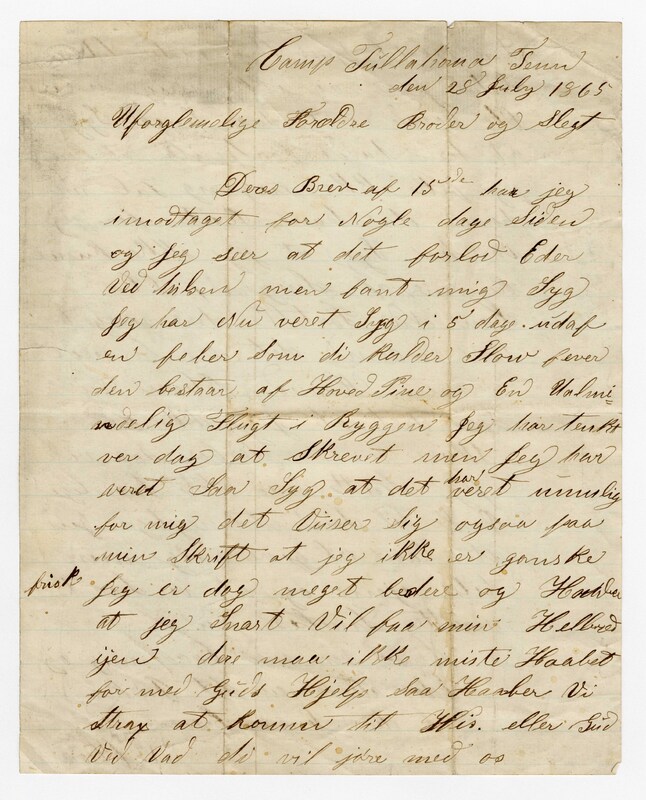 Camp Tullahoma Tenn
den 28 July 1865
Uforglemelige Forældre Broder og Slegt
Deres Brev af 15de har jeg
imodtaget for Nogle dage Siden
og jeg seer at det forlod Eder
Ved hilsen men fant mig Syg
jeg har Nu veret Syg i 5 dage udaf
en feber Som di kalder Slow fever
den bestaar af Hoved Pine og En Ualmi=
ndelig Flugt i Ryggen Jeg har tenkt
ver dag at Skrevet men jeg har
veret Saa Syg at det har veret umulig
for mig det Viiser Sig ogsaa paa
min Skrift at jeg ikke er ganske
frisk
jeg er dog meget bedere og
at jeg Snart Vil faa min Helbred
ijen dere maa ikke miste Haabet
for med Guds Hjelp Saa Haaber Vi
strax at komm tit His. eller Gud
Ved Vad di vil jøre med os